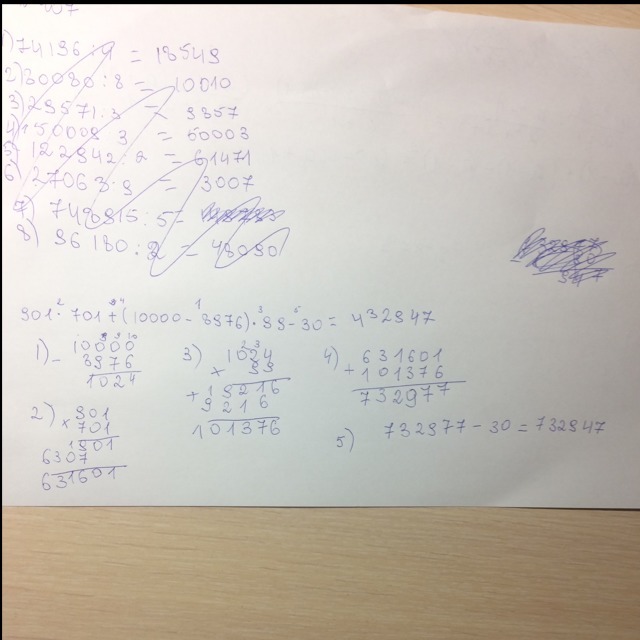 1) 74196 : 4 = 18549
2) 30080 : 8 = 10010
3) 29571 : 3 = 9857
4) 150009 : 3 = 50003
5) 122942 : 2 = 61471
6) 27063 : 9 = 3007
7) 7498915 : 5 =
8) 96180 : 2 = 48090
901 · 701 + (10000 - 8976) · 99 - 30 = 432947
1) - 10000
8976
1024
2) × 901
701
1901
6307
631601
3) 1024
× 99
+ 19216
9216
101376
4) 631601
+ 101376
732977
5) 732977 - 30 = 732947